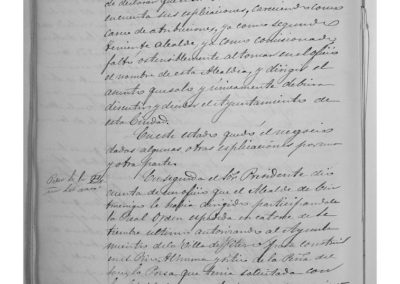 de declarar que
encuenta sus esplicaciones, careciendo como
carece de atribuciones, ya como segundo
teniente Alcalde, ya como comisionado,
faltó ostensiblemente al tomar en el oficio
el nombre de esta Alcaldia, y dirigir el
asunto que solo y únicamente debiera
discutir y dirimir el Ayuntamiento de
esta Ciudad.
En este estado quedó el negocio
dadas algunas otras esplicaciones por una
y otra parte.
En seguida el Sr. Presidente dió
cuenta de un oficio que el Alcalde de
le habia dirigido participandole
la Real Orden espedida en catorce de Se
tiembre ultimo autorizando al Ayunta
miento de la Villa de para construir
en el Rio y sitio de la Peña del
Presa que tenia solicitada con